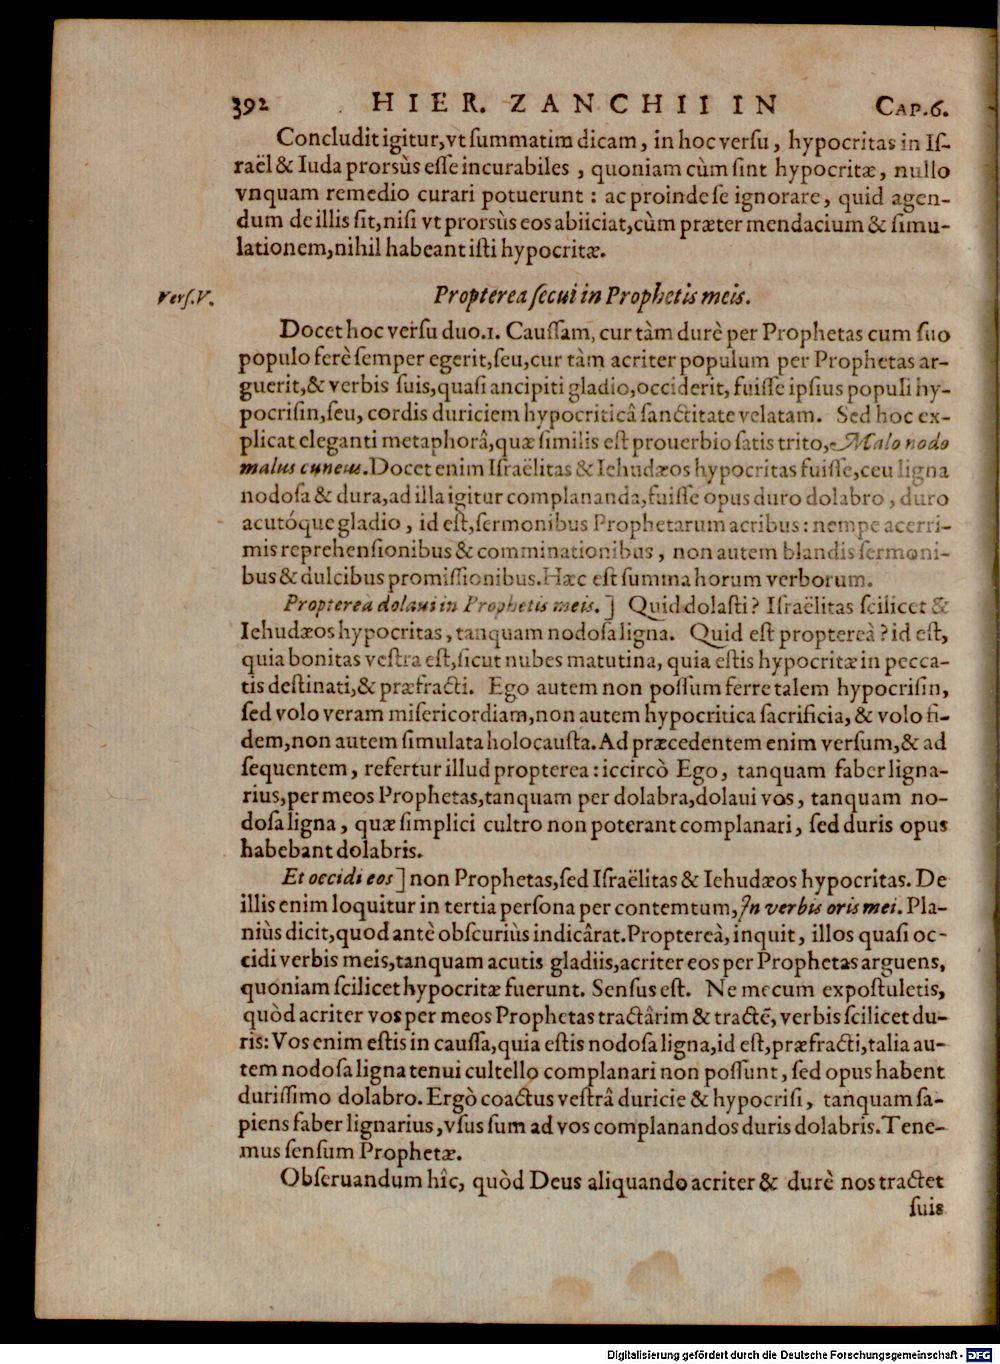 392 HIER. ZANCHII IN CAP.6.
Concludit igitur, vt summatim dicam, in hoc versu, hypocritas in Is-
raël & Iuda prorsùs esse incurabiles, quoniam cùm sint hypocritæ, nullo
vnquam remedio curari potuerunt: ac proinde se ignorare, quid agen-
dum de illis sit, nisi vt prorsùs eos abiiciat, cùm præter mendacium & simu-
lationem, nihil habeant isti hypocritæ.
Vers.V. Propterea secui in Prophetis meis.
Docet hoc versu duo. 1. Caussam, cur tàm durè per Prophetas cum suo
populo ferè semper egerit, seu, cur tàm acriter populum per Prophetas ar-
guerit, & verbis suis, quasi ancipiti gladio, occiderit, fuisse ipsius populi hy-
pocrisin, seu, cordis duriciem hypocriticâ sanctitate velatam. Sed hoc ex-
plicat eleganti metaphorâ, quæ similis est prouerbio satis trito, Malo nodo
malus cuneus. Docet enim Israëlitas & Iehudæos hypocritas fuisse, ceu ligna
nodosa & dura, ad illa igitur complananda, fuisse opus duro dolabro, duro
acutóque gladio, id est, sermonibus Prophetarum acribus: nempe acerri-
mis reprehensionibus & comminationibus, non autem blandis sermoni-
bus & dulcibus promissionibus. Hæc est summa horum verborum.
Propterea dolaui in Prophetis meis.] Quid dolasti? Israëlitas scilicet &
Iehudæos hypocritas, tanquam nodosa ligna. Quid est propterea? id est,
quia bonitas vestra est, sicut nubes matutina, quia estis hypocritæ in pecca-
tis destinati, & præfracti. Ego autem non possum ferre talem hypocrisin,
sed volo veram misericordiam, non autem hypocritica sacrificia, & volo fi-
dem, non autem simulata holocausta. Ad præcedentem enim versum, & ad
sequentem, refertur illud propterea: iccircò Ego, tanquam faber ligna-
rius, per meos Prophetas, tanquam per dolabra, dolaui vos, tanquam no-
dosa ligna, quæ simplici cultro non poterant complanari, sed duris opus
habebant dolabris.
Et occidi eos] non Prophetas, sed Israëlitas & Iehudæos hypocritas. De
illis enim loquitur in tertia persona per contemtum, In verbis oris mei. Pla-
niùs dicit, quod antè obscuriùs indicârat. Proptereà, inquit, illos quasi oc-
cidi verbis meis, tanquam acutis gladiis, acriter eos per Prophetas arguens,
quoniam scilicet hypocritæ fuerunt. Sensus est. Ne mecum expostuletis,
quòd acriter vos per meos Prophetas tractârim & tractē, verbis scilicet du-
ris: Vos enim estis in caussa, quia estis nodosa ligna, id est, præfracti, talia au-
tem nodosa ligna tenui cultello complanari non possunt, sed opus habent
durissimo dolabro. Ergò coactus vestrâ duricie & hypocrisi, tanquam sa-
piens faber lignarius, vsus sum ad vos complanandos duris dolabris. Tene-
mus sensum Prophetæ.
Obseruandum hîc, quòd Deus aliquando acriter & durè nos tractet
suis
Digitalisierung gefördert durch die Deutsche Forschungsgemeinschaft - DFG